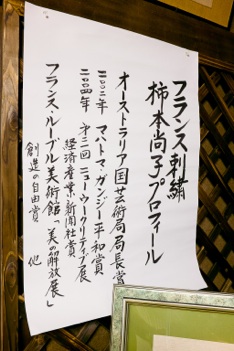 フランス刺繍
柿本尚子プロフィール
オーストラリア国芸術局局長賞
二〇〇二年 マハトマ・ガンジー平和賞
二〇〇四年 第二回ニューウークリナティブ展
経済産業新聞社賞
フランス・ルーブル美術館「美の解放展」
創造の自由賞 他